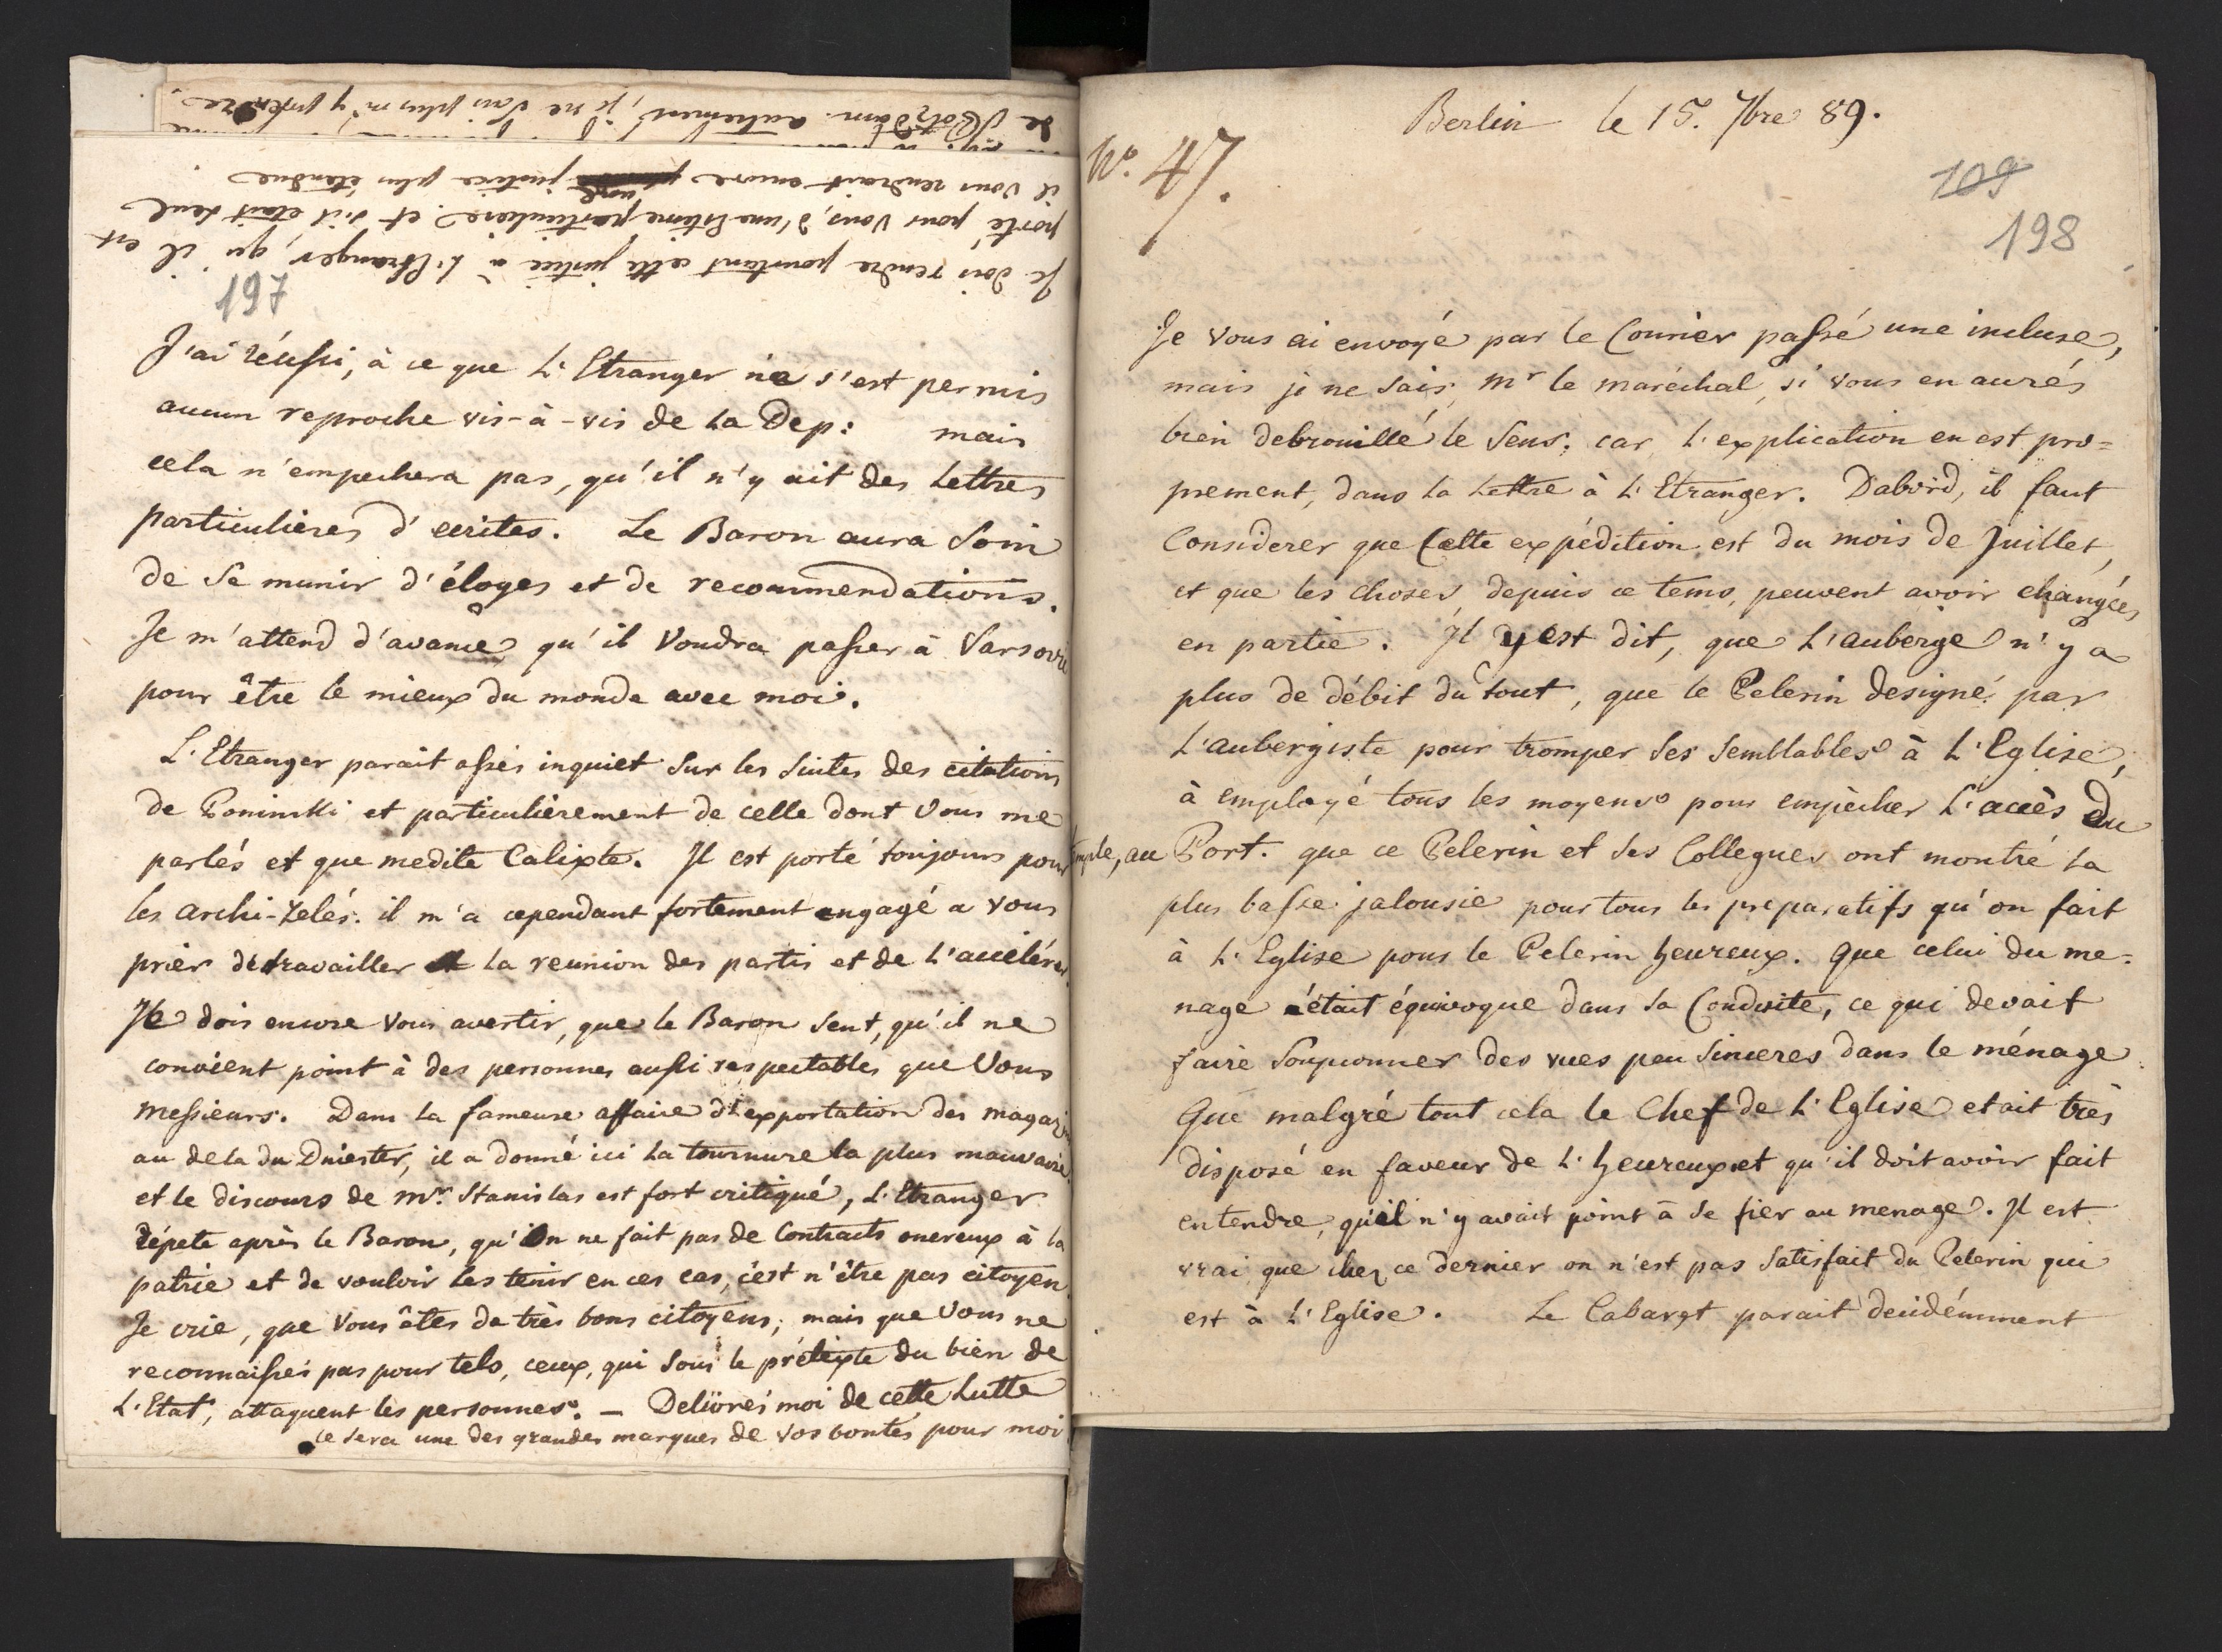 de Potzdam. autrement, je ne vais plus m'y prendre
Je dois rendre pourtant cette justice à L'Etranger, qu'il est
porté pour Vous, d'une Estime particuliere. et s'il etait seul
il vous rendrait encore une justice plus étendue.
197
J'ai réussi, à ce que L'Etranger ne s'est permis
aucun reproche vis-à-vis de la Dep: mais
cela n'empechera pas, qu'il n'y ait des Lettres
particulières d'ecrites. Le Baron aura soin
de se munir d'éloges et de recommendations.
Je m'attend d'avance qu'il voudra passer à Varsovie
pour être le mieux du monde avec moi.
L'Etranger parait assés inquiet sur les suites des citations
de Poninski et particulièrement de celle dont Vous me
parlés et que medite Calixte. Il est porté toujours pour
les archi-zelés. il m'a cependant fortement engagé a vous
prier de travailler a la reunion des partis et de l'accélérer.
Je dois encore vous avertir, que le Baron sent, qu'il ne
convient point à des personnes aussi respectables que Vous
Messieurs. Dans la fameuse affaire d'exportation des magazins
au dela du Dniester, il a donné ici la tournure la plus mauvaise
et le discours de Mr. Stanislas est fort critiqué, L'Etranger
répete après le Baron, qu'on ne fait pas de Contracts onereux à la
patrie et de vouloir les tenir en ces cas, c'est n'être pas citoyen.
Je crie, que Vous âtes de très bons citoyens; mais que Vous ne
reconnaissés pas pour tels, ceux, qui sous le prétexte du bien de
L'Etat, attaquent les personnes. — Delivrés moi de cette Lutte
ce sera une des grandes marques de vos bontés pour moi
Berlin le 15. 7bre 89.
No. 47.
109
198
Je vous ai envoyé par le Courier passé une incluse,
mais je ne sais, Mr le maréchal, si vous en aurés
bien debrouillé le sens; car, l'explication en est pro=
prement, dans la Lettre à L'Etranger. Dabord, il faut
Considerer que Cette expédition est du mois de Juillet,
et que les choses, depuis ce tems, peuvent avoir changées
en partie. Il y est dit, que L'auberge n'y a
plus de débit du tout, que le Pelerin designé par
L'aubergiste pour tromper ses semblables à L'Eglise,
à employé tous les moyens pour empêcher L'accès du
temple, au Port. que ce Pelerin et ses Collegues ont montré la
plus basse jalousie pour tous les preparatifs qu'on fait
à L'Eglise pour le Pelerin heureux. Que celui du me=
nage était équivoque dans sa Conduite, ce qui devait
faire soupconner des vues peu sinceres dans le ménage.
Que malgré tout cela le Chef de L'Eglise etait très
disposé en faveur de L'heureux et qu'il doit avoir fait
entendre, qu'il n'y avait point à se fier au menage. Il est
vrai que chez ce dernier on n'est pas satisfait du Pelerin qui
est à L'Eglise. Le Cabaret parait decidémment